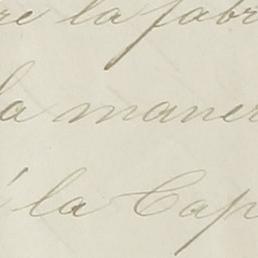 re la fabr
la maner
á la Cap